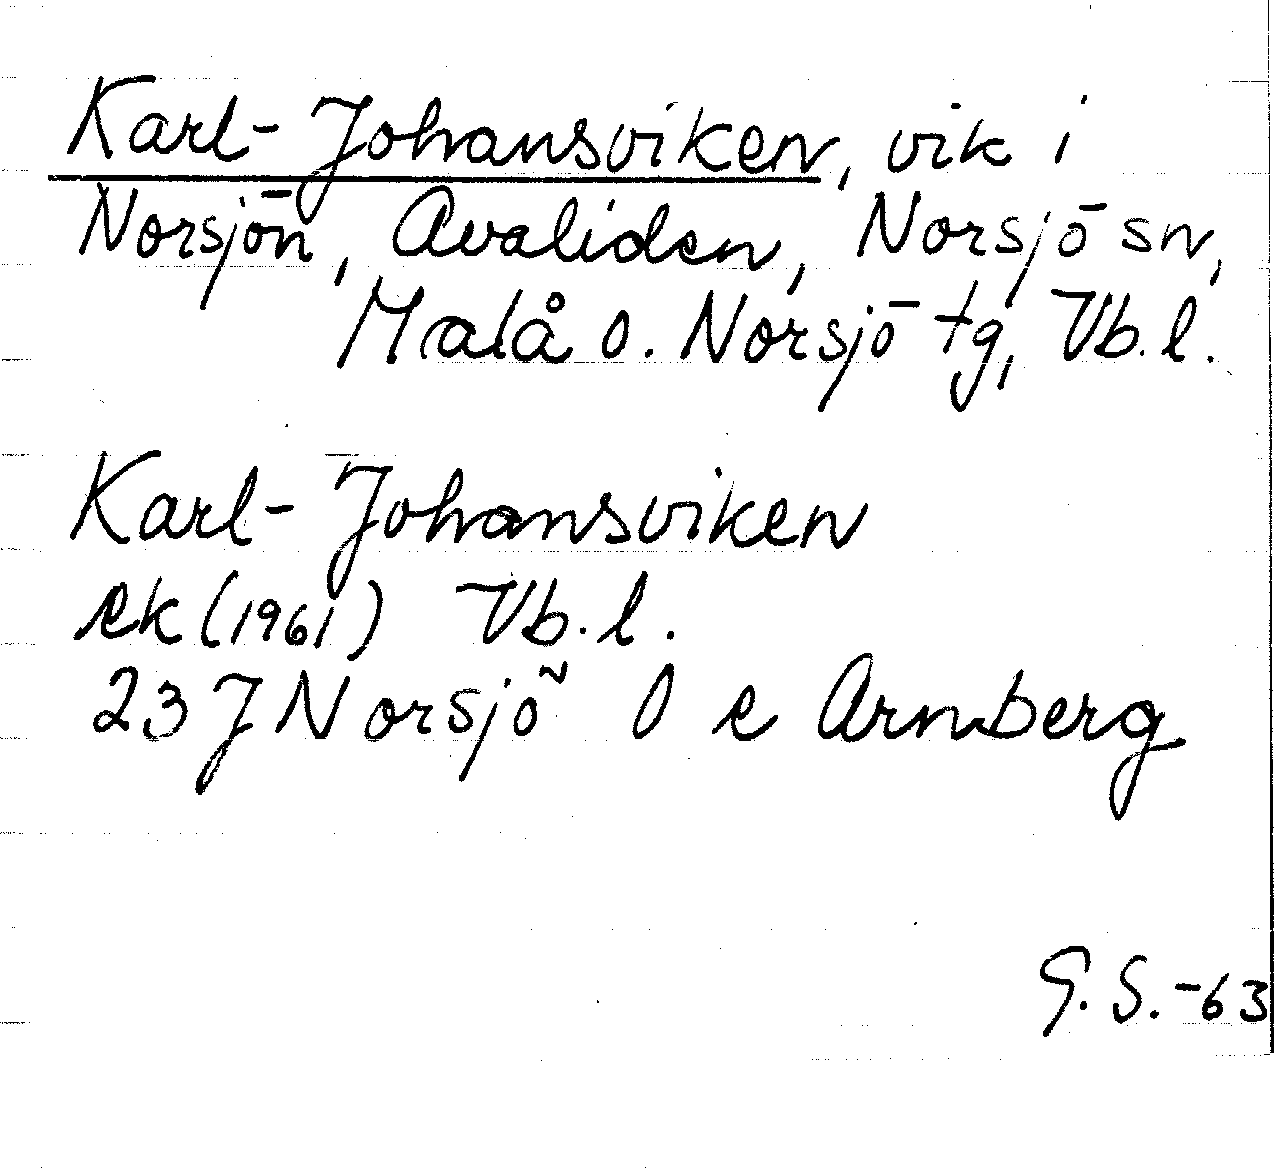 Karl-Johansviken, vik i
Norsjön, Avaliden, Norsjö sn,
Malå o. Norsjö tg, Vb. l.
Karl-Johansviken
ek (1961) Vb. l.
23 J Norsjö O e Arnberg
G. S. -63